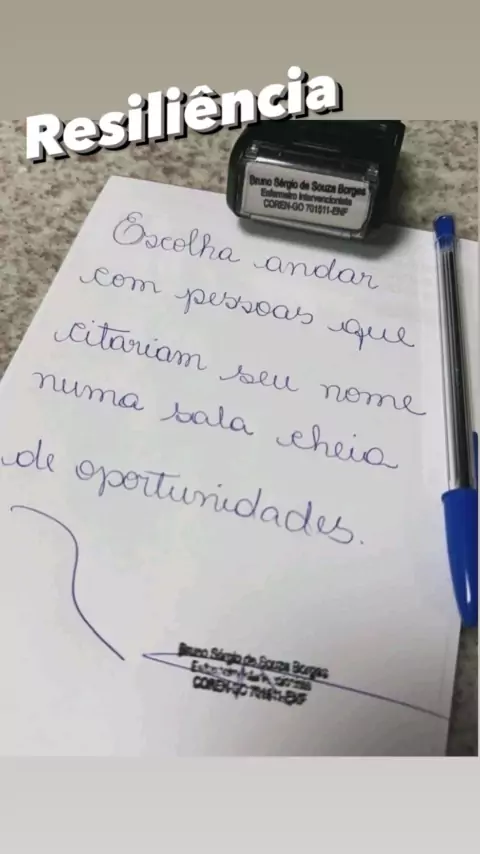 Resiliência
Bruno Sérgio de Souza Borges
Enfermeiro Intervencionista
COREN-GO 701511-ENF
Escolha andar
com pessoas que
citariam seu nome
numa sala cheia
de oportunidades.
Bruno Sérgio de Souza Borges
COREN-GO 701511-ENF